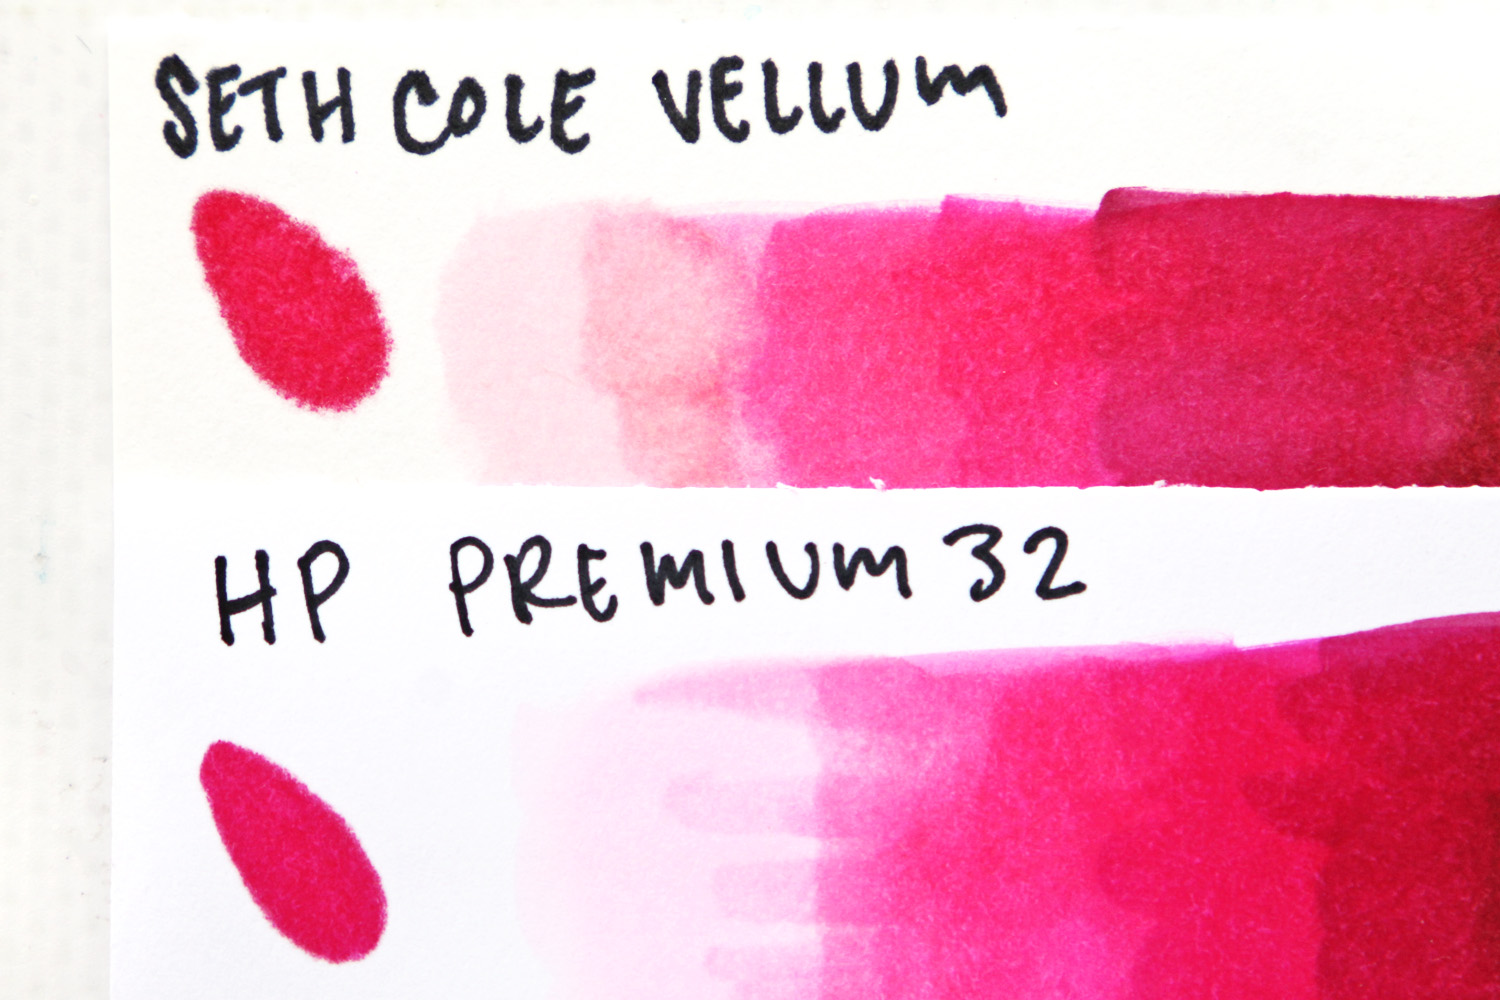 SETH COLE VELLUM
HP PREMIUM 32